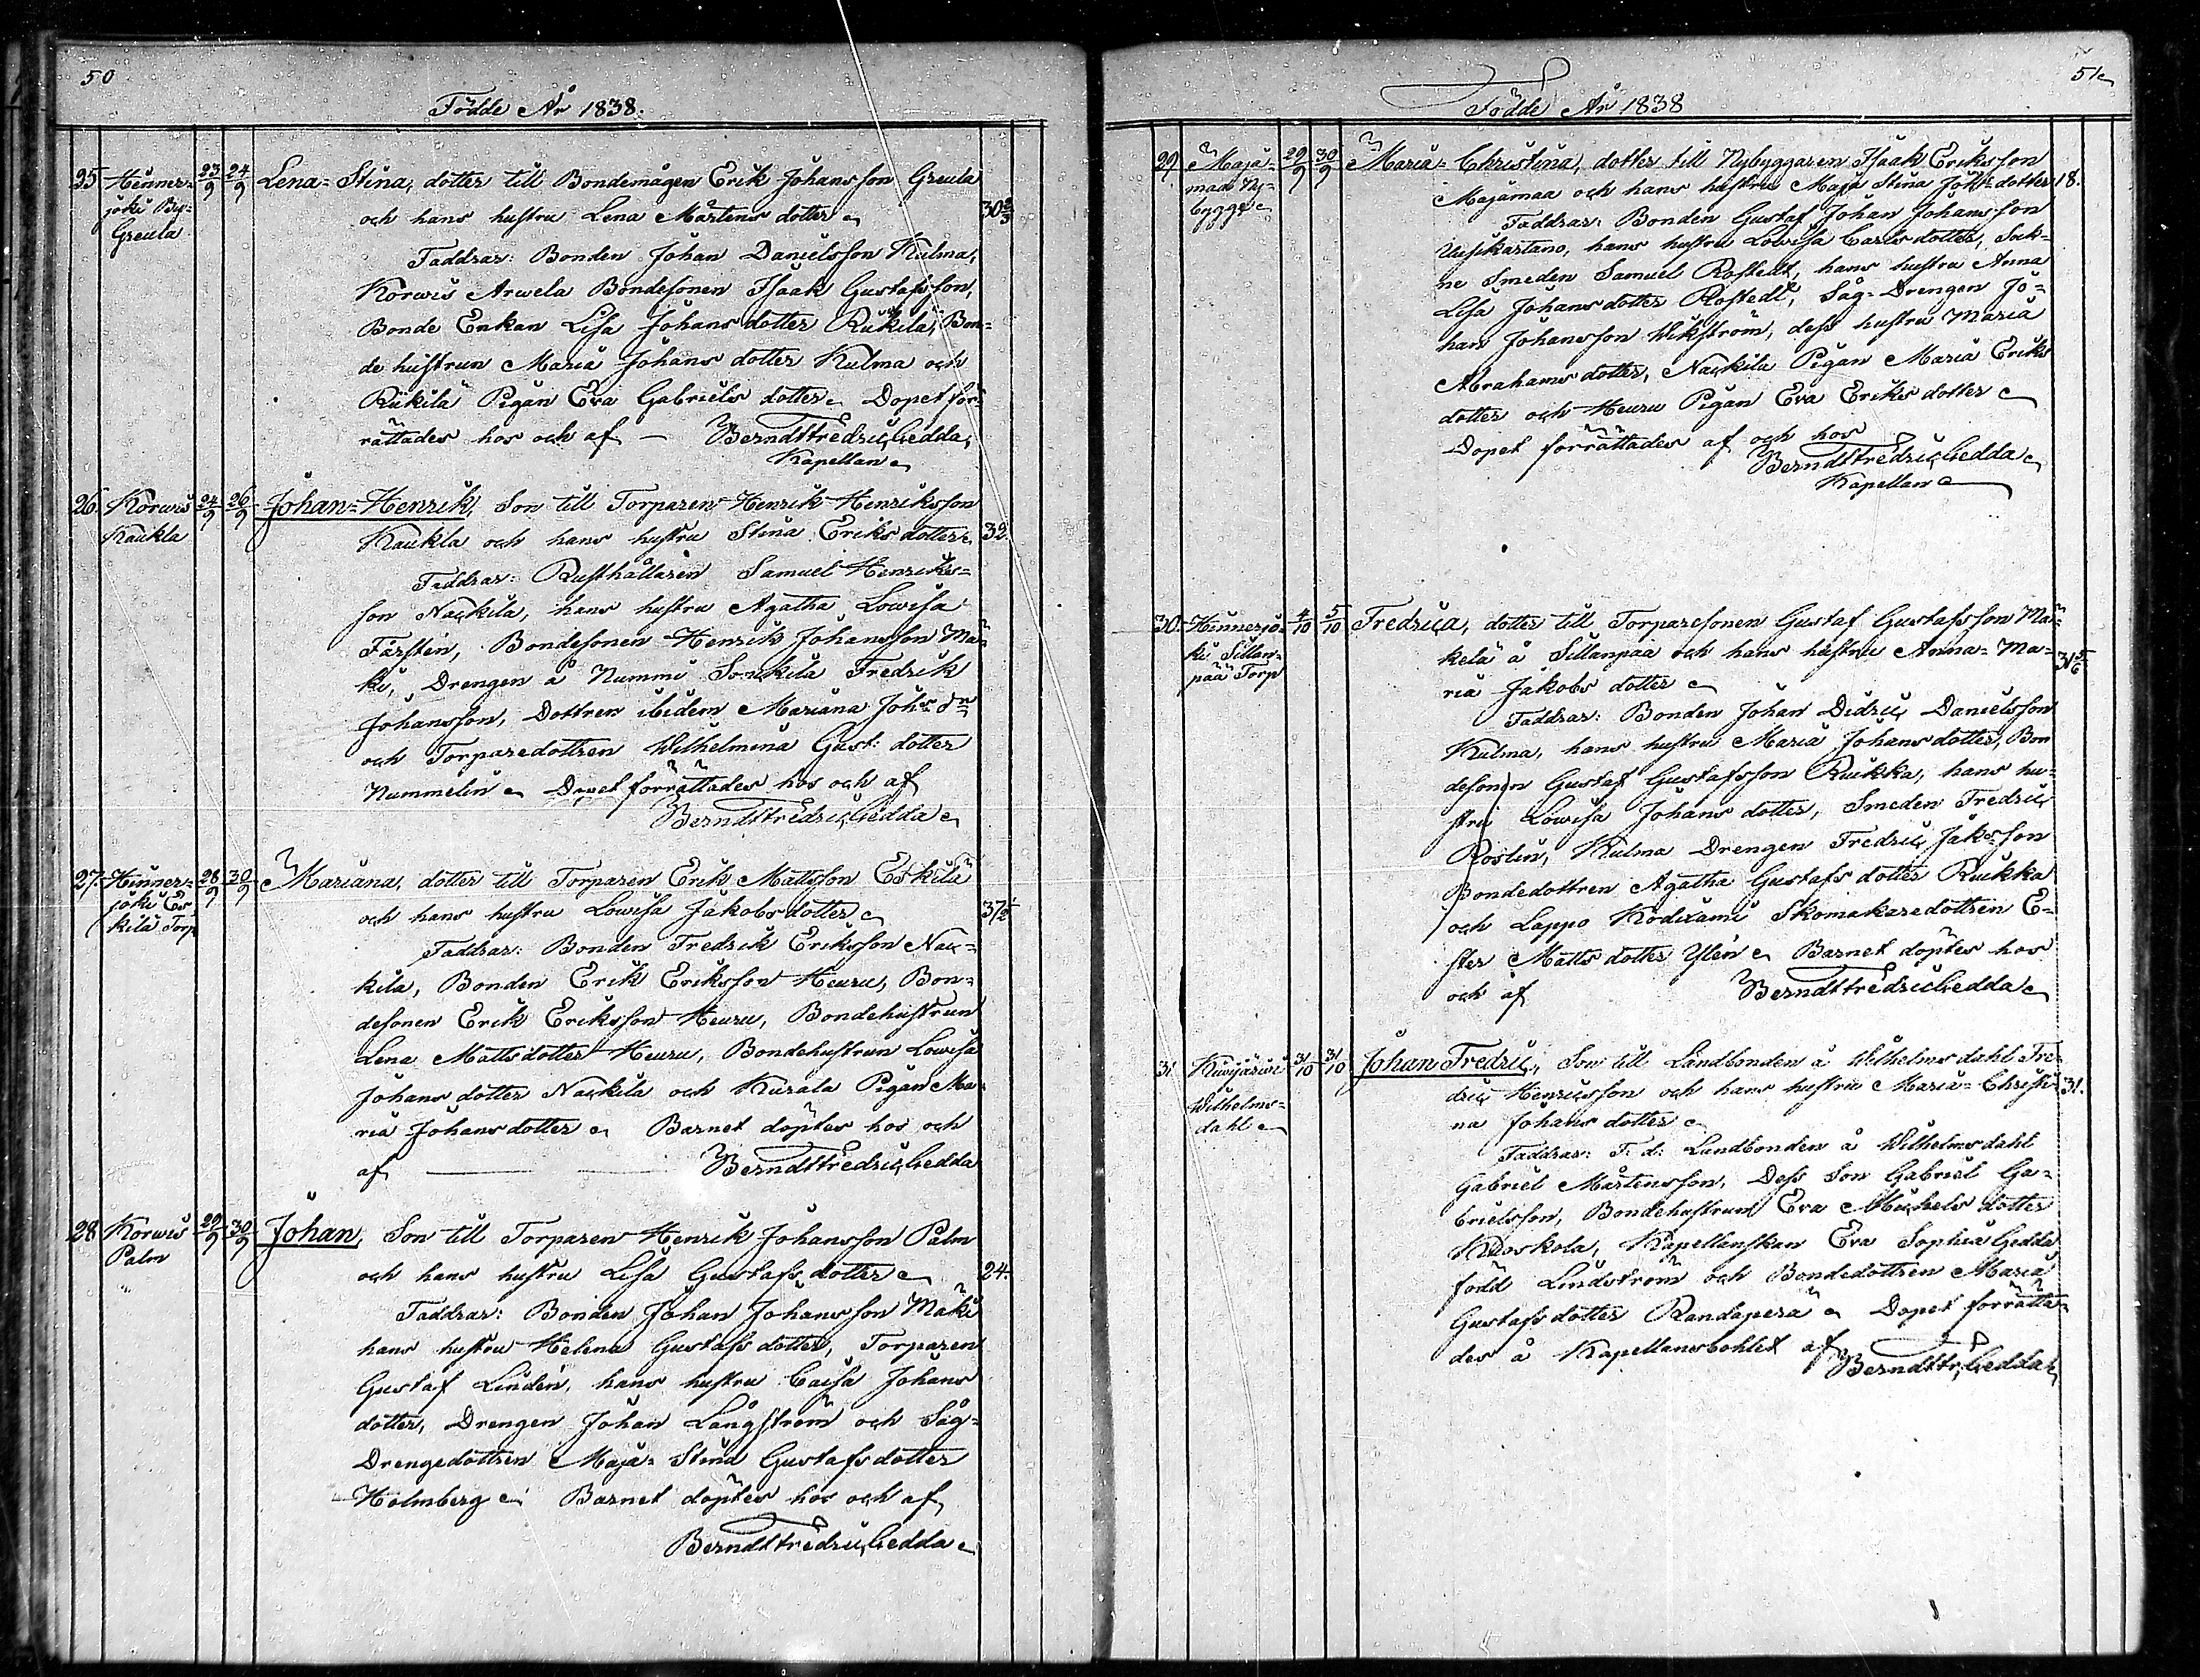 50
Födde År 1838.
25 Hinner- 23/9 24/9 Lena-Stina, dotter till Bondemågen Erik Johansson Greula
joki By- och hans hustru Lena Mårtens dotter 30 2/3
Greula
Faddrar: Bonden Johan Danielsson Kulma,
Korwis Arwela Bondesonen Isaak Gustafsson,
Bonde Enkan Lisa Johans dotter Rükilä, Bon-
de hustrun Maria Johans dotter Kulma och
Rükilä Pigan Eva Gabriels dotter. Dopet för-
rättades hos och af — Berndt Fredric Gedda,
Kapellan
26. Korwis 24/9 26/9 Johan-Henrik, Son till Torparen Henrik Henriksson
Kaukla och hans hustru Stina Eriks dotter. 32.
Kaukla
Faddrar: Rusthållaren Samuel Henriks-
son Nackila, hans hustru Agatha Lowisa
Färstén, Bondesonen Henrik Johansson Mä-
ki, Drengen å Nummi Sonkila Fredrik
Johansson, Dottren ibidem Mariana Johs dr
och Torparedottren Wilhelmina Gust: dotter
Nummelin. Dopet förrättades hos och af
Berndt Fredric Gedda
27. Hinner- 28/9 30/9 Mariana, dotter till Torparen Erik Mattsson Eskilä
joki Es- och hans hustru Lowisa Jakobs dotter 37 1/2
kilä Torp
Faddrar: Bonden Fredrik Eriksson Nac-
kila, Bonden Erik Eriksson Heuru, Bon-
desonen Erik Eriksson Heuru, Bondehustrun
Lena Matts dotter Heuru, Bondehustrun Lowisa
Johans dotter Nackila och Kurala Pigan Ma-
ria Johans dotter. Barnet döptes hos och
af — Berndt Fredric Gedda
28 Korwis 29/9 30/9 Johan, Son till Torparen Henrik Johansson Palm
Palm och hans hustru Lisa Gustafs dotter 24.
"
Faddrar: Bonden Johan Johansson Mäki
hans hustru Helena Gustafs dotter, Torparen
Gustaf Lindén, hans hustru Caisa Johans
dotter, Drengen Johan Långström och Såg-
Drengedottren Maja-Stina Gustafs dotter
Holmberg. Barnet döptes hos och af
Berndt Fredric Gedda
51
Födde År 1838
29. Maja- 29/9 30/9 Maria-Christina, dotter till Nybyggaren Isaak Eriksson
maa Ny- Majamaa och hans hustru Maja Stina Johs dotter 18.
bygge
Faddrar: Bonden Gustaf Johan Johansson
Uusikartano, hans hustru Lowisa Carls dotter, Sock-
ne Smeden Samuel Rostedt, hans hustru Anna
Lisa Johans dotter Rostedt, Såg-Drengen Jo-
han Johansson Wikström, dess hustru Maria
Abrahams dotter, Nackila Pigan Maria Eriks
dotter och Heuru Pigan Eva Eriks dotter
Dopet förrättades af och hos
Berndt Fredric Gedda
Kapellan
30. Hinnerjo- 4/10 5/10 Fredrica, dotter till Torparesonen Gustaf Gustafsson Mä-
ki Sillan- kelä å Sillanpää och hans hustru Anna-Ma- 31 5/6
pää Torp ria Jakobs dotter
Faddrar: Bonden Johan Didric Danielsson
Kulma, hans hustru Maria Johans dotter, Bon
desonen Gustaf Gustafsson Ruckka, hans hu-
stru Lowisa Johans dotter, Smeden Fredric
Roslin, Kulma Drengen Fredric Jaksson
Bondedottren Agatha Gustafs dotter Ruckka
och Lappo Ködixämi Skomakaredottren E-
ster Matts dotter Ylén. Barnet döptes hos
och af Berndt Fredric Gedda
31. Kuijärwi 31/10 31/10 Johan Fredric, Son till Landbonden å Wilhelmsdahl Fre-
Wilhelms- dric Henricsson och hans hustru Maria-Christi- 31.
dahl na Johans dotter
Faddrar: F. d. Landbonden å Wilhelmsdahl
Gabriel Mårtensson, Dess Son Gabriel Ga-
brielsson, Bondehustrun Eva Michels dotter
Kooskola, Kapellanskan Eva Sophia Gedda
född Lindström och Bondedottren Maria
Gustafs dotter Randaperä. Dopet förrätta-
des å Kapellansbohlet af
Berndt Fr. Gedda